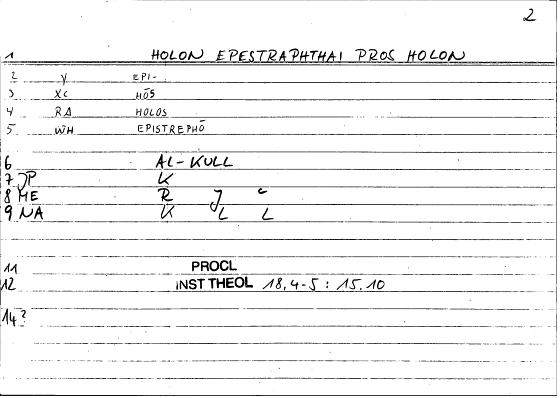 2
1 HOLON EPESTRAPHTHAI PROS HOLON
2 Y EPI-
3 XC HŌS
4 RA HOLOS
5 WH EPISTREPHŌ
6 AL-KULL
7 JP K
8 ME R J C
9 NA K L L
11 PROCL
12 INST THEOL 18,4-5 : 15.10
14?